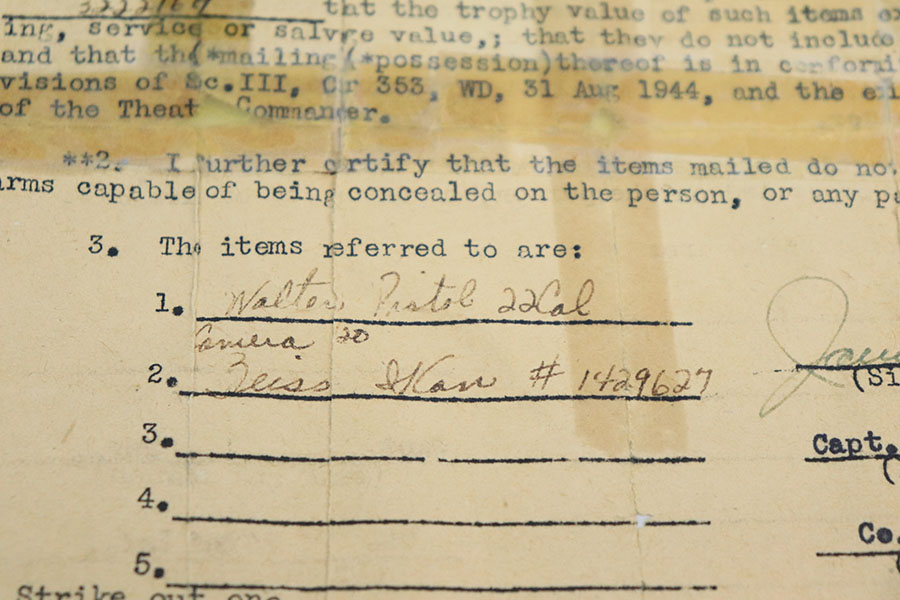 that the trophy value of such items ex
ing, service or salvge value,; that they do not include
and that the(*mailing(*possession)thereof is in conformi
visions of Sc.III, Cir 353, WD, 31 Aug 1944, and the exi
of the Theat Commander.
**2. I further certify that the items mailed do not
arms capable of being concealed on the person, or any pa
3. The items referred to are:
1. Walter Pistol 22Cal
Camera 120
2. Zeiss IKan # 1429627
(Si
3.
Capt.
(
4.
Co.
5.
Strike out one